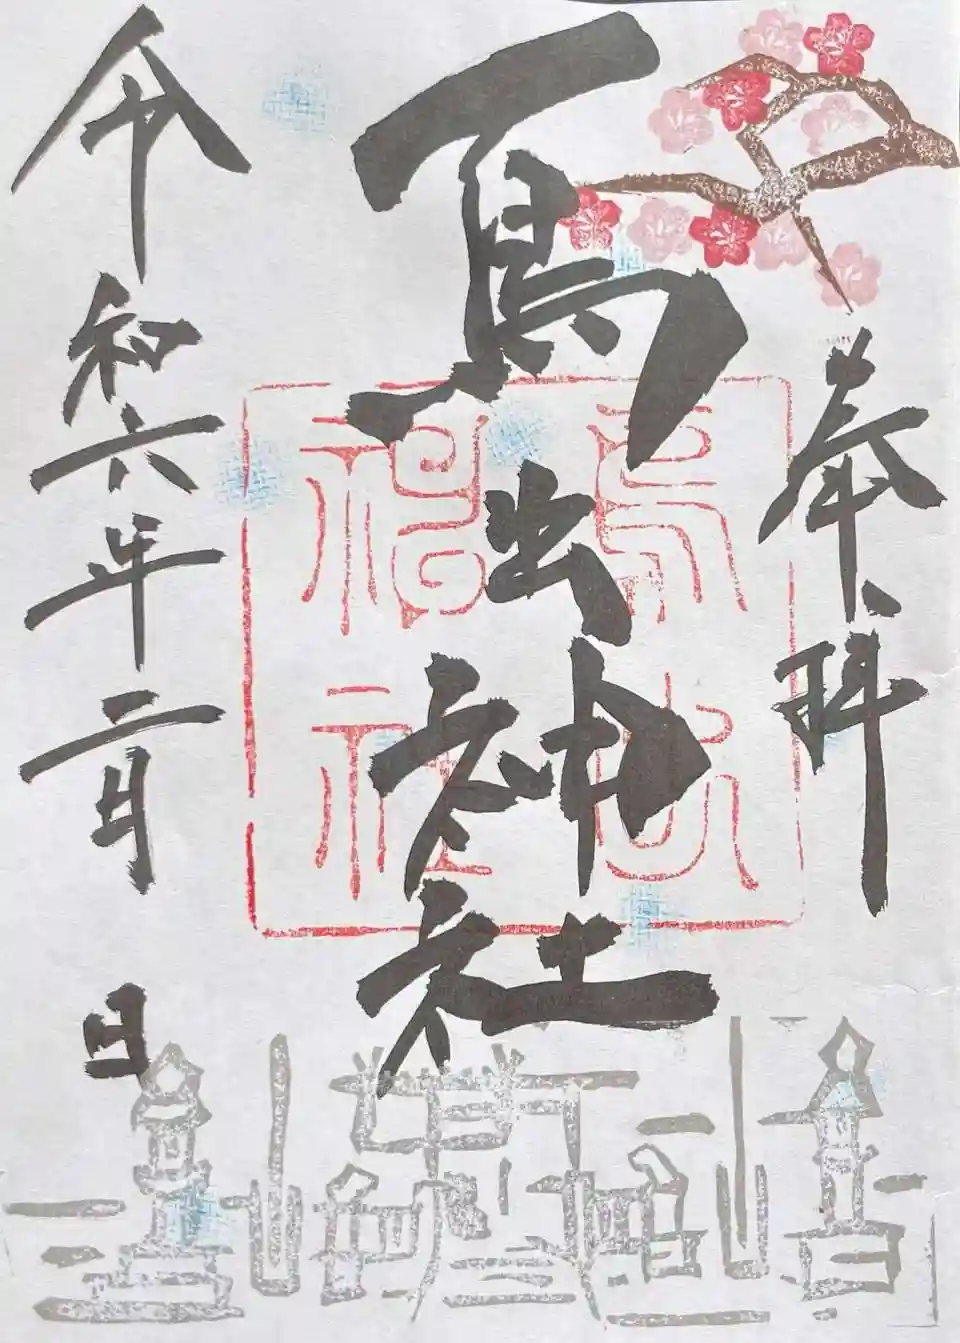 奉拝
鳥出神社
令和六年二月 日